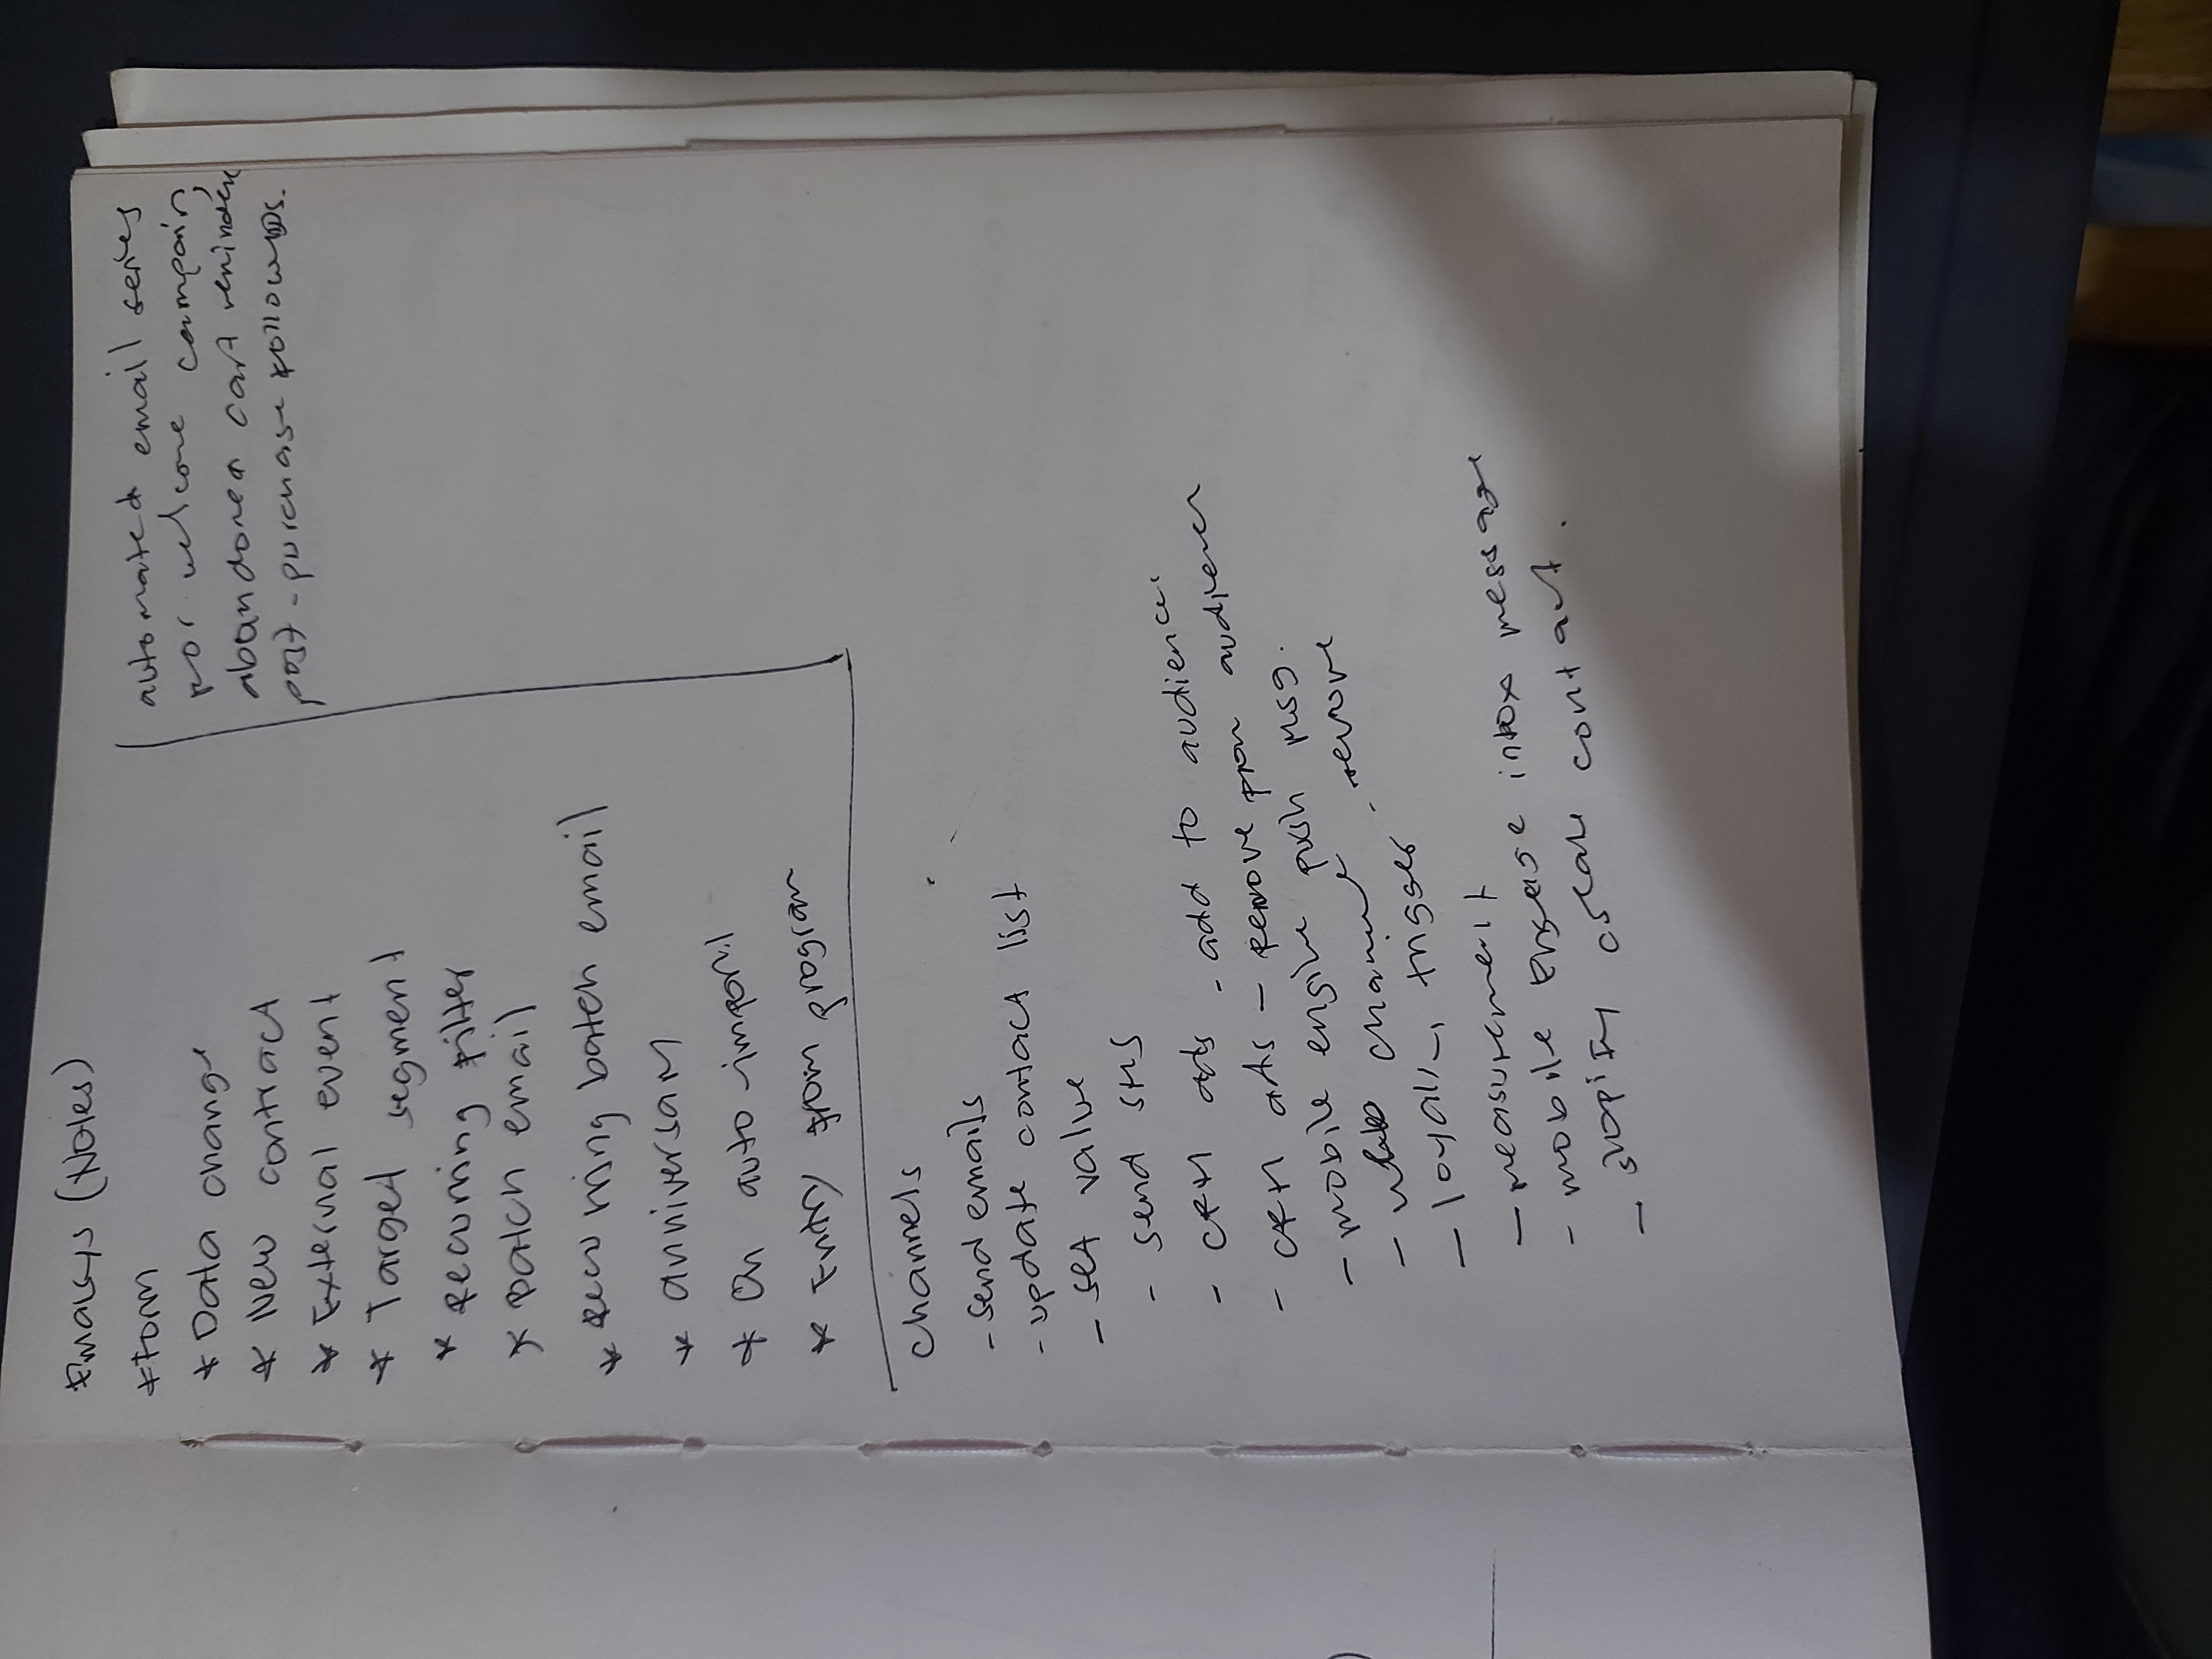 Emarsys (Notes)
* Form
* Data change
* New contract
* External event
* Target segment
* Recurring filter
* Batch email
* Recurring batch email
* anniversary
* On auto-import
* Entry from program
automated email series
for welcome campain,
abandoned cart reminders
post-purchase followups.
Channels
- send emails
- update contact list
- set value
- send SMS
- CRM ads - add to audience.
- CRM ads - Remove from audience
- mobile engine push msg.
- web channel - remove
- loyalty trigger
- measurement
- mobile Engage inbox message
- shopify contact.